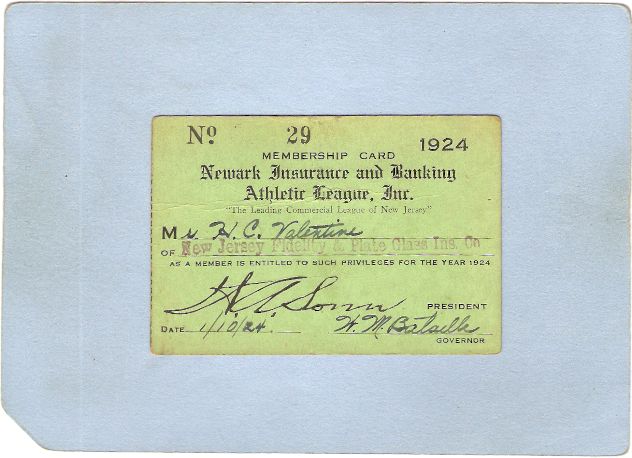 Nº 29 1924
MEMBERSHIP CARD
Newark Insurance and Banking
Athletic League, Inc.
"The Leading Commercial League of New Jersey"
Mr. H. C. Valentine
OF New Jersey Fidelity & Plate Glass Ins. Co
AS A MEMBER IS ENTITLED TO SUCH PRIVILEGES FOR THE YEAR 1924
PRESIDENT
DATE 1/10/24. H. M.
GOVERNOR